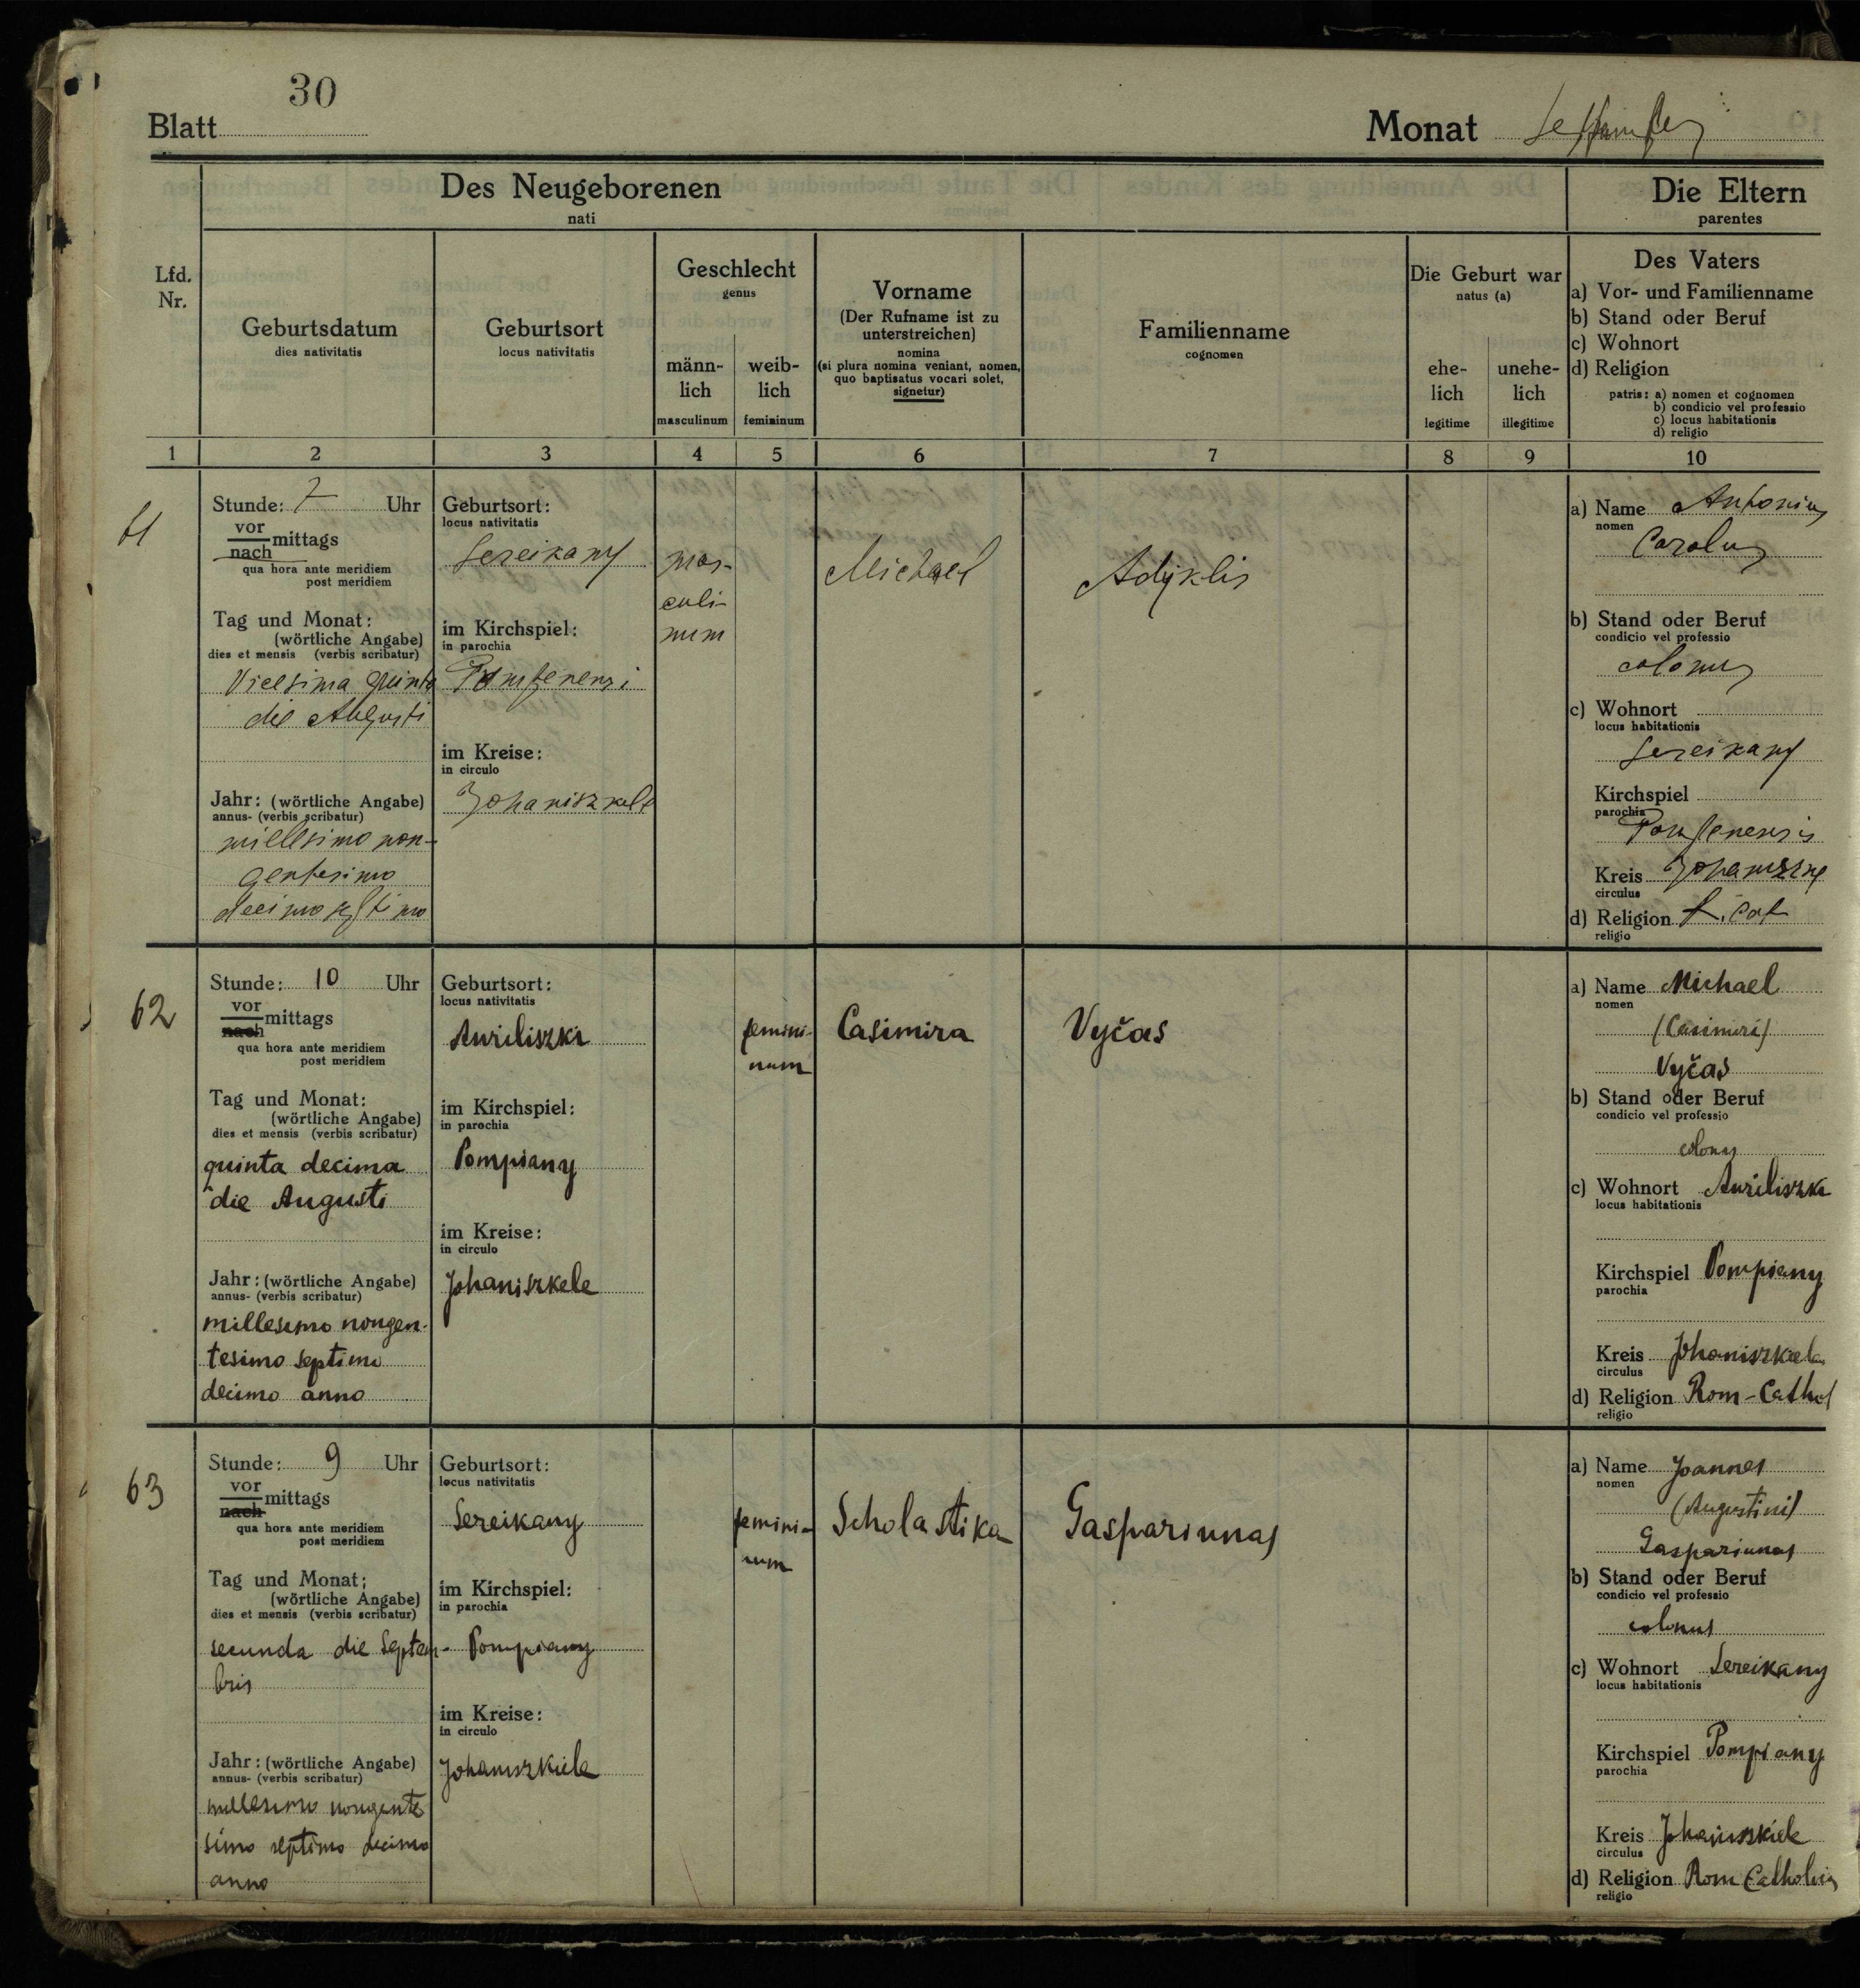 30
Blatt
Monat
Des Neugeborenen
nati
Die Eltern
parentes
Lfd.
Nr.
Geburtsdatum
dies nativitatis
Geburtsort
locus nativitatis
Geschlecht
genus
männ-
lich
masculinum
weib-
lich
femininum
Vorname
(Der Rufname ist zu
unterstreichen)
nomina
(si plura nomina veniant, nomen,
quo baptisatus vocari solet,
signetur)
Familienname
cognomen
Die Geburt war
natus (a)
ehe-
lich
legitime
unehe-
lich
illegitime
Des Vaters
a) Vor- und Familienname
b) Stand oder Beruf
c) Wohnort
d) Religion
patris: a) nomen et cognomen
b) condicio vel professio
c) locus habitationis
d) religio
1 2 3 4 5 6 7 8 9 10
61
Stunde: 7 Uhr
vor
nach mittags
qua hora ante meridiem
post meridiem
Tag und Monat:
(wörtliche Angabe)
dies et mensis (verbis scribatur)
Vicesima quinta
die Augusti
Jahr: (wörtliche Angabe)
annus- (verbis scribatur)
millesimo non-
gentesimo
decimo septimo
Geburtsort:
locus nativitatis
Sereikany
im Kirchspiel:
in parochia
im Kreise:
in circulo
Johaniszkele
mas-
culi-
num
Michael
Adyklis
a) Name Antonius
nomen
Carolus
b) Stand oder Beruf
condicio vel professio
colonus
c) Wohnort
locus habitationis
Sereikany
Kirchspiel
parochia
Kreis
circulus
d) Religion r. cat
religio
62
Stunde: 10 Uhr
vor
nach mittags
qua hora ante meridiem
post meridiem
Tag und Monat:
(wörtliche Angabe)
dies et mensis (verbis scribatur)
quinta decima
die Augusti
Jahr: (wörtliche Angabe)
annus- (verbis scribatur)
millesimo nongen-
tesimo septimo
decimo anno
Geburtsort:
locus nativitatis
Auriliszki
im Kirchspiel:
in parochia
Pompiany
im Kreise:
in circulo
Johaniszkele
femini-
num
Casimira
Vyčas
a) Name Michael
nomen
(Casimiri)
Vyčas
b) Stand oder Beruf
condicio vel professio
colonus
c) Wohnort Auriliszki
locus habitationis
Kirchspiel Pompiany
parochia
Kreis Johaniszkiele
circulus
d) Religion Rom-Cathol
religio
63
Stunde: 9 Uhr
vor
nach mittags
qua hora ante meridiem
post meridiem
Tag und Monat:
(wörtliche Angabe)
dies et mensis (verbis scribatur)
secunda die Septem-
bris
Jahr: (wörtliche Angabe)
annus- (verbis scribatur)
millesimo nongente
simo septimo decimo
anno
Geburtsort:
locus nativitatis
Sereikany
im Kirchspiel:
in parochia
Pompiany
im Kreise:
in circulo
Johaniszkiele
femini-
num
Scholastika
Gaspariunas
a) Name Joannes
nomen
(Augustini)
Gaspariunas
b) Stand oder Beruf
condicio vel professio
colonus
c) Wohnort Sereikany
locus habitationis
Kirchspiel Pompiany
parochia
Kreis Johaniszkiele
circulus
d) Religion Rom Catholica
religio